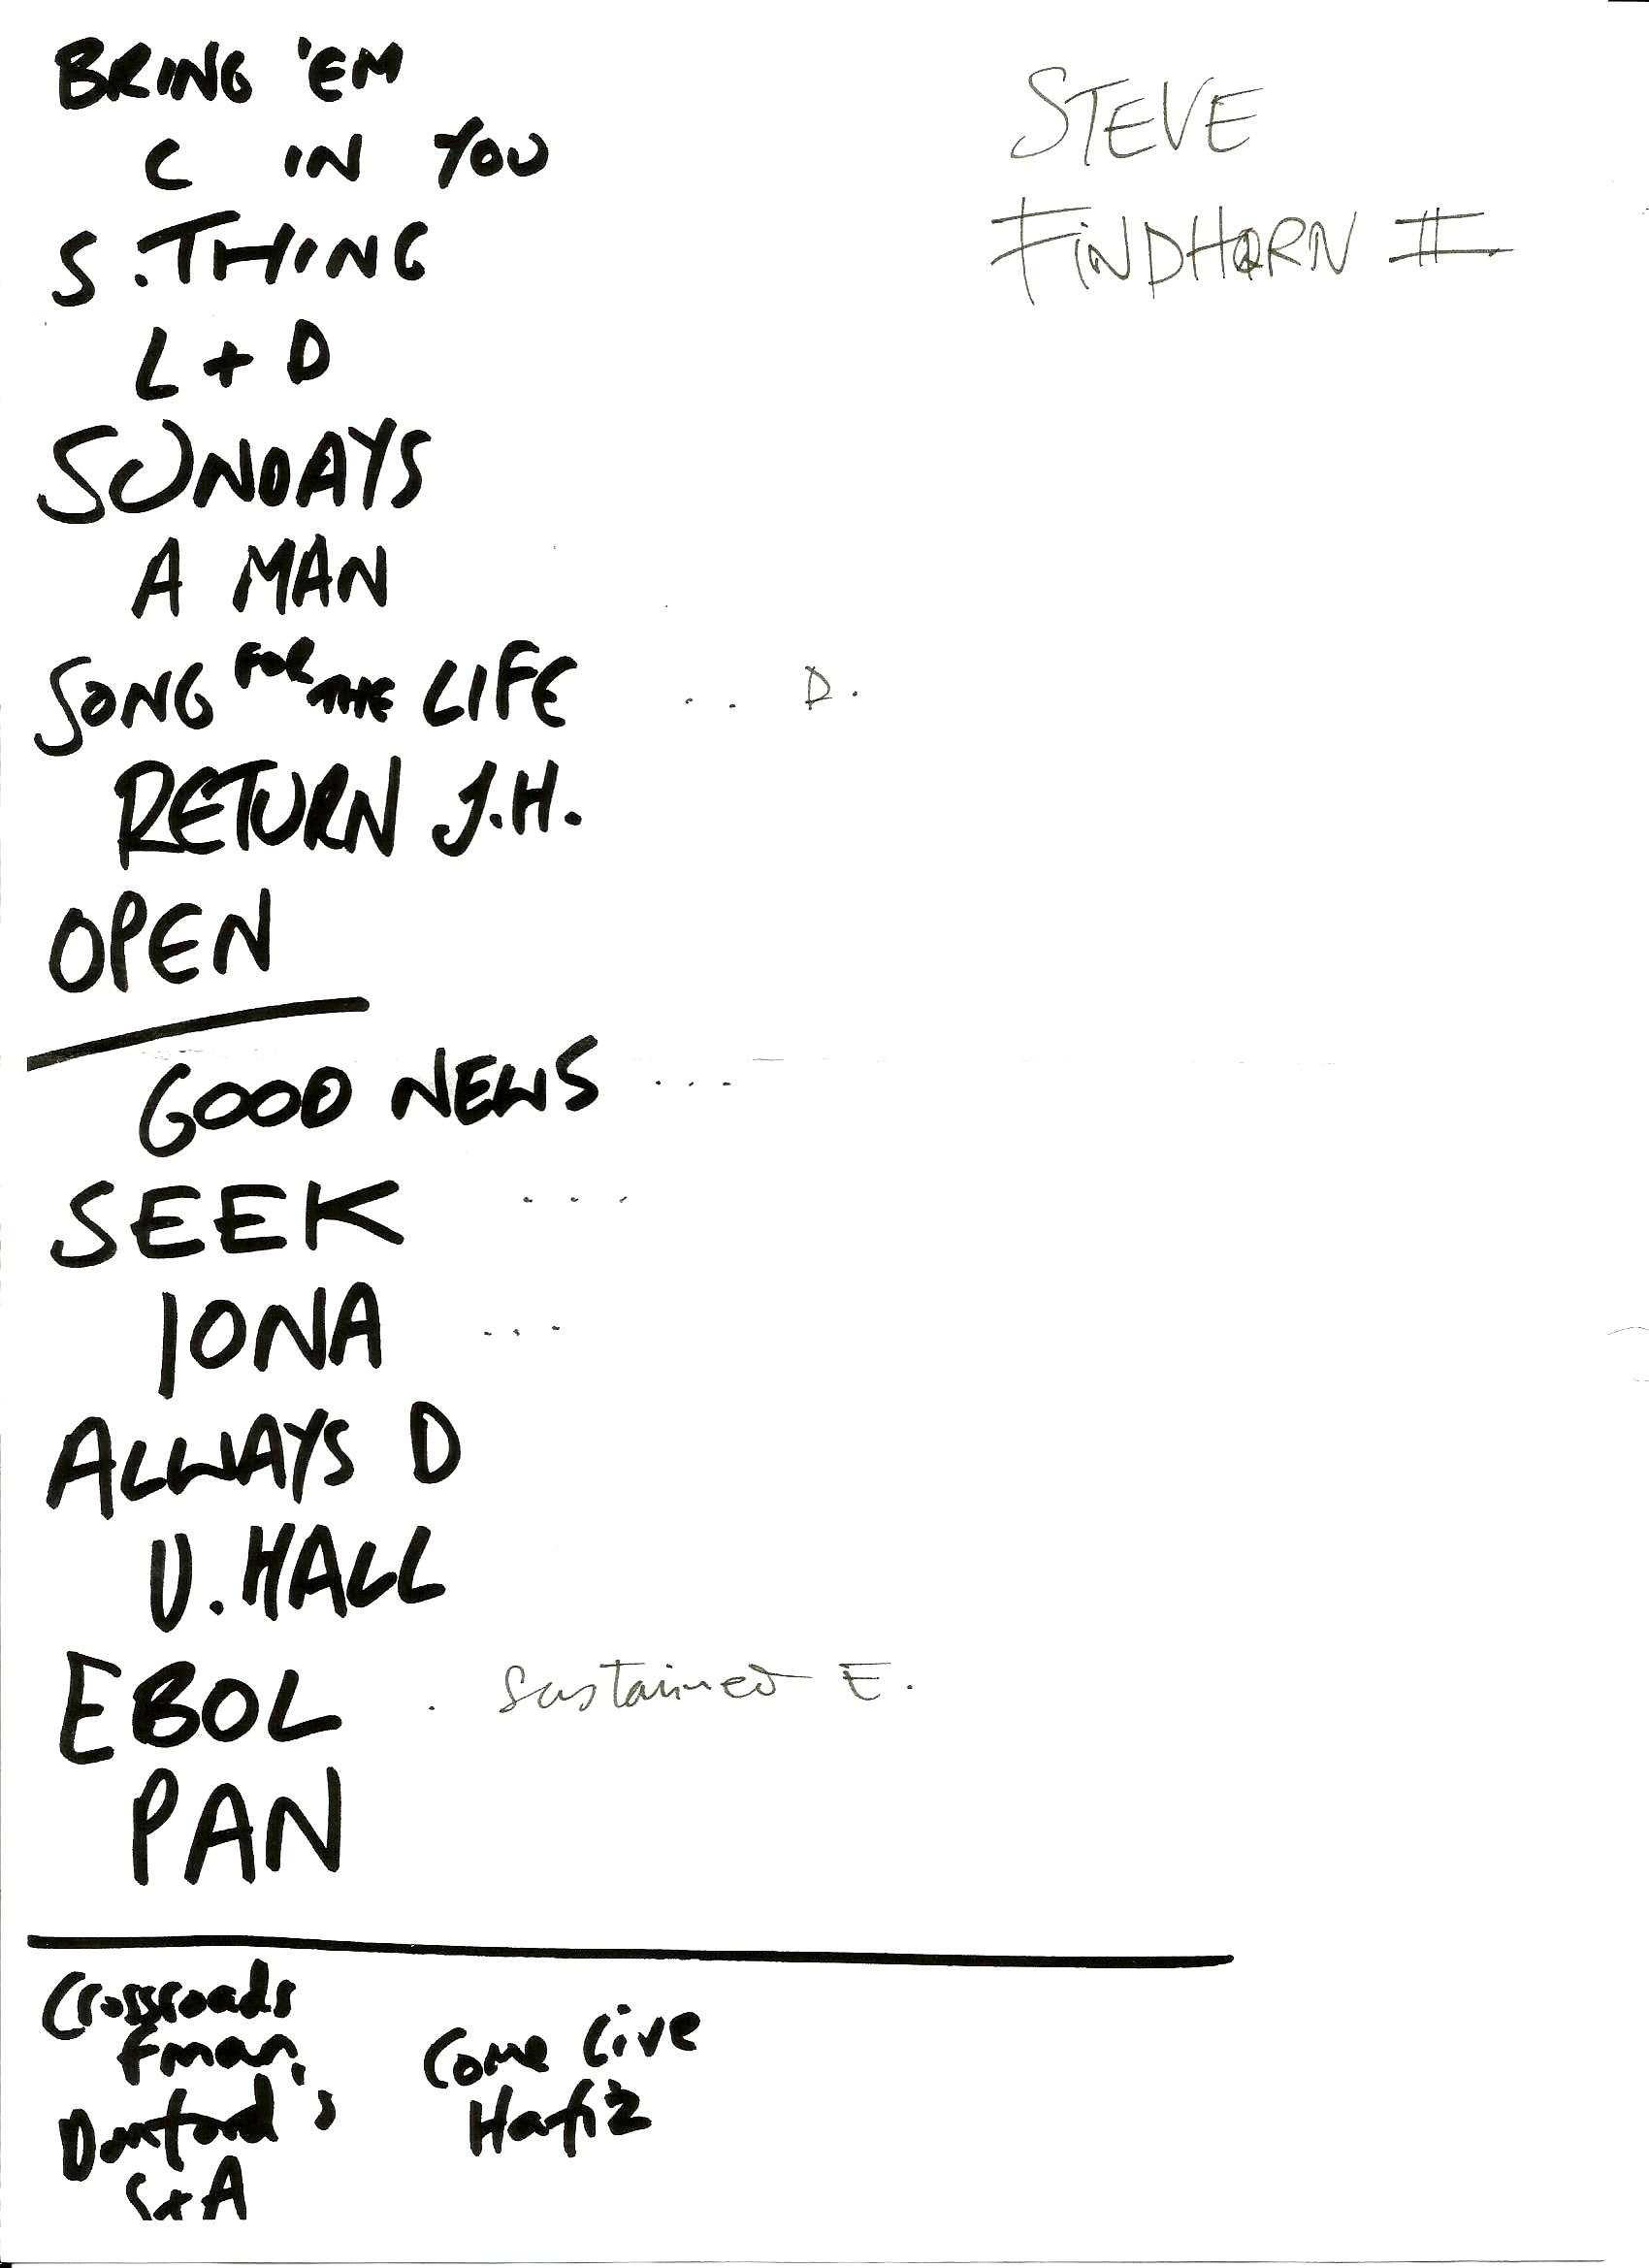 BRING 'EM
C IN YOU
S. THING
L + D
SUNDAYS
A MAN
SONG FOR THE LIFE .. D.
RETURN J.H.
OPEN
GOOD NEWS ...
SEEK ...
IONA ...
ALWAYS D
U. HALL
EBOL . Sustained E.
PAN
Crossroads
Fman
Danford's
S+A
Come Live
Hafiz
STEVE
FINDHORN II